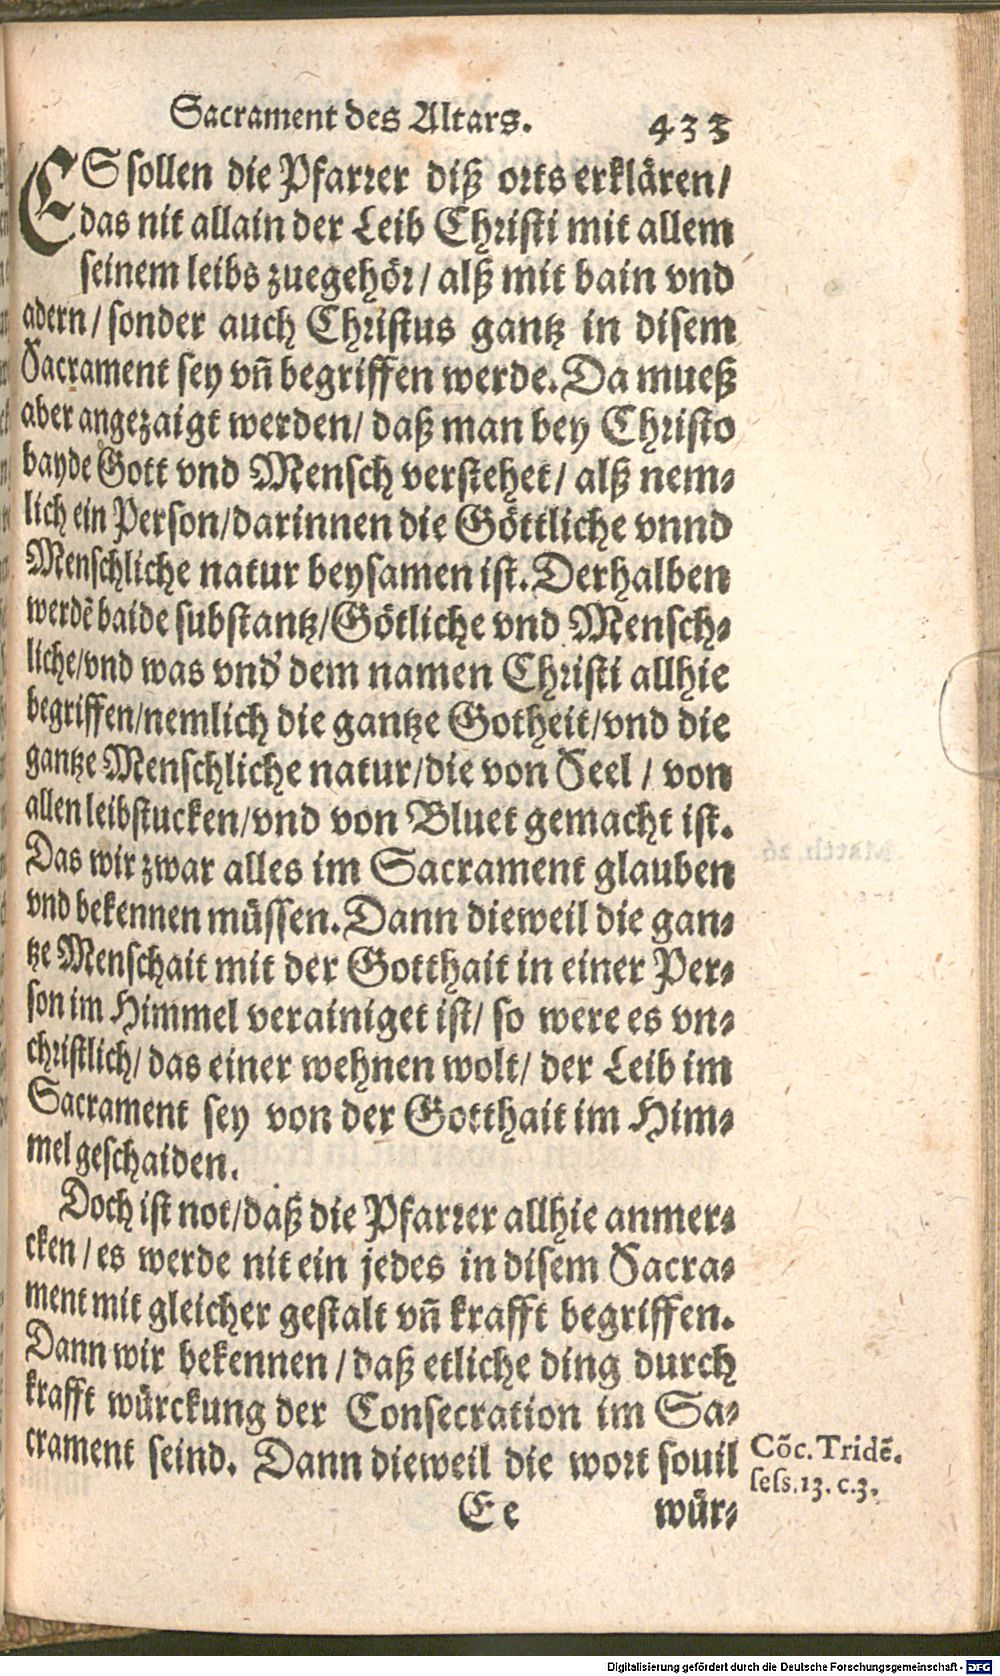 Sacrament des Altars. 433
ES sollen die Pfarrer diß orts erklären/
das nit allain der Leib Christi mit allem
seinem leibs zuegehör/ alß mit bain vnd
adern/ sonder auch Christus gantz in disem
Sacrament sey vñ begriffen werde. Da mueß
aber angezaigt werden/ daß man bey Christo
bayde Gott vnd Mensch verstehet/ alß nem⸗
lich ein Person/darinnen die Göttliche vnnd
Menschliche natur beysamen ist. Derhalben
werdē baide substantz/Götliche vnd Mensch⸗
liche/vnd was vnd' dem namen Christi allhie
begriffen/nemlich die gantze Gotheit/vnd die
gantze Menschliche natur/die von Seel / von
allen leibstucken/vnd von Bluet gemacht ist.
Das wir zwar alles im Sacrament glauben
vnd bekennen müssen. Dann dieweil die gan⸗
tze Menschait mit der Gotthait in einer Per⸗
son im Himmel verainiget ist/ so were es vn⸗
christlich/ das einer wehnen wolt/ der Leib im
Sacrament sey von der Gotthait im Him⸗
mel geschaiden.
Doch ist not/daß die Pfarrer allhie anmer⸗
cken / es werde nit ein jedes in disem Sacra⸗
ment mit gleicher gestalt vñ krafft begriffen.
Dann wir bekennen / daß etliche ding durch
krafft würckung der Consecration im Sa⸗
crament seind. Dann dieweil die wort souil
Cōc. Tridē.
sess. 13. c. 3.
Ee wür⸗
Digitalisierung gefördert durch die Deutsche Forschungsgemeinschaft - DFG